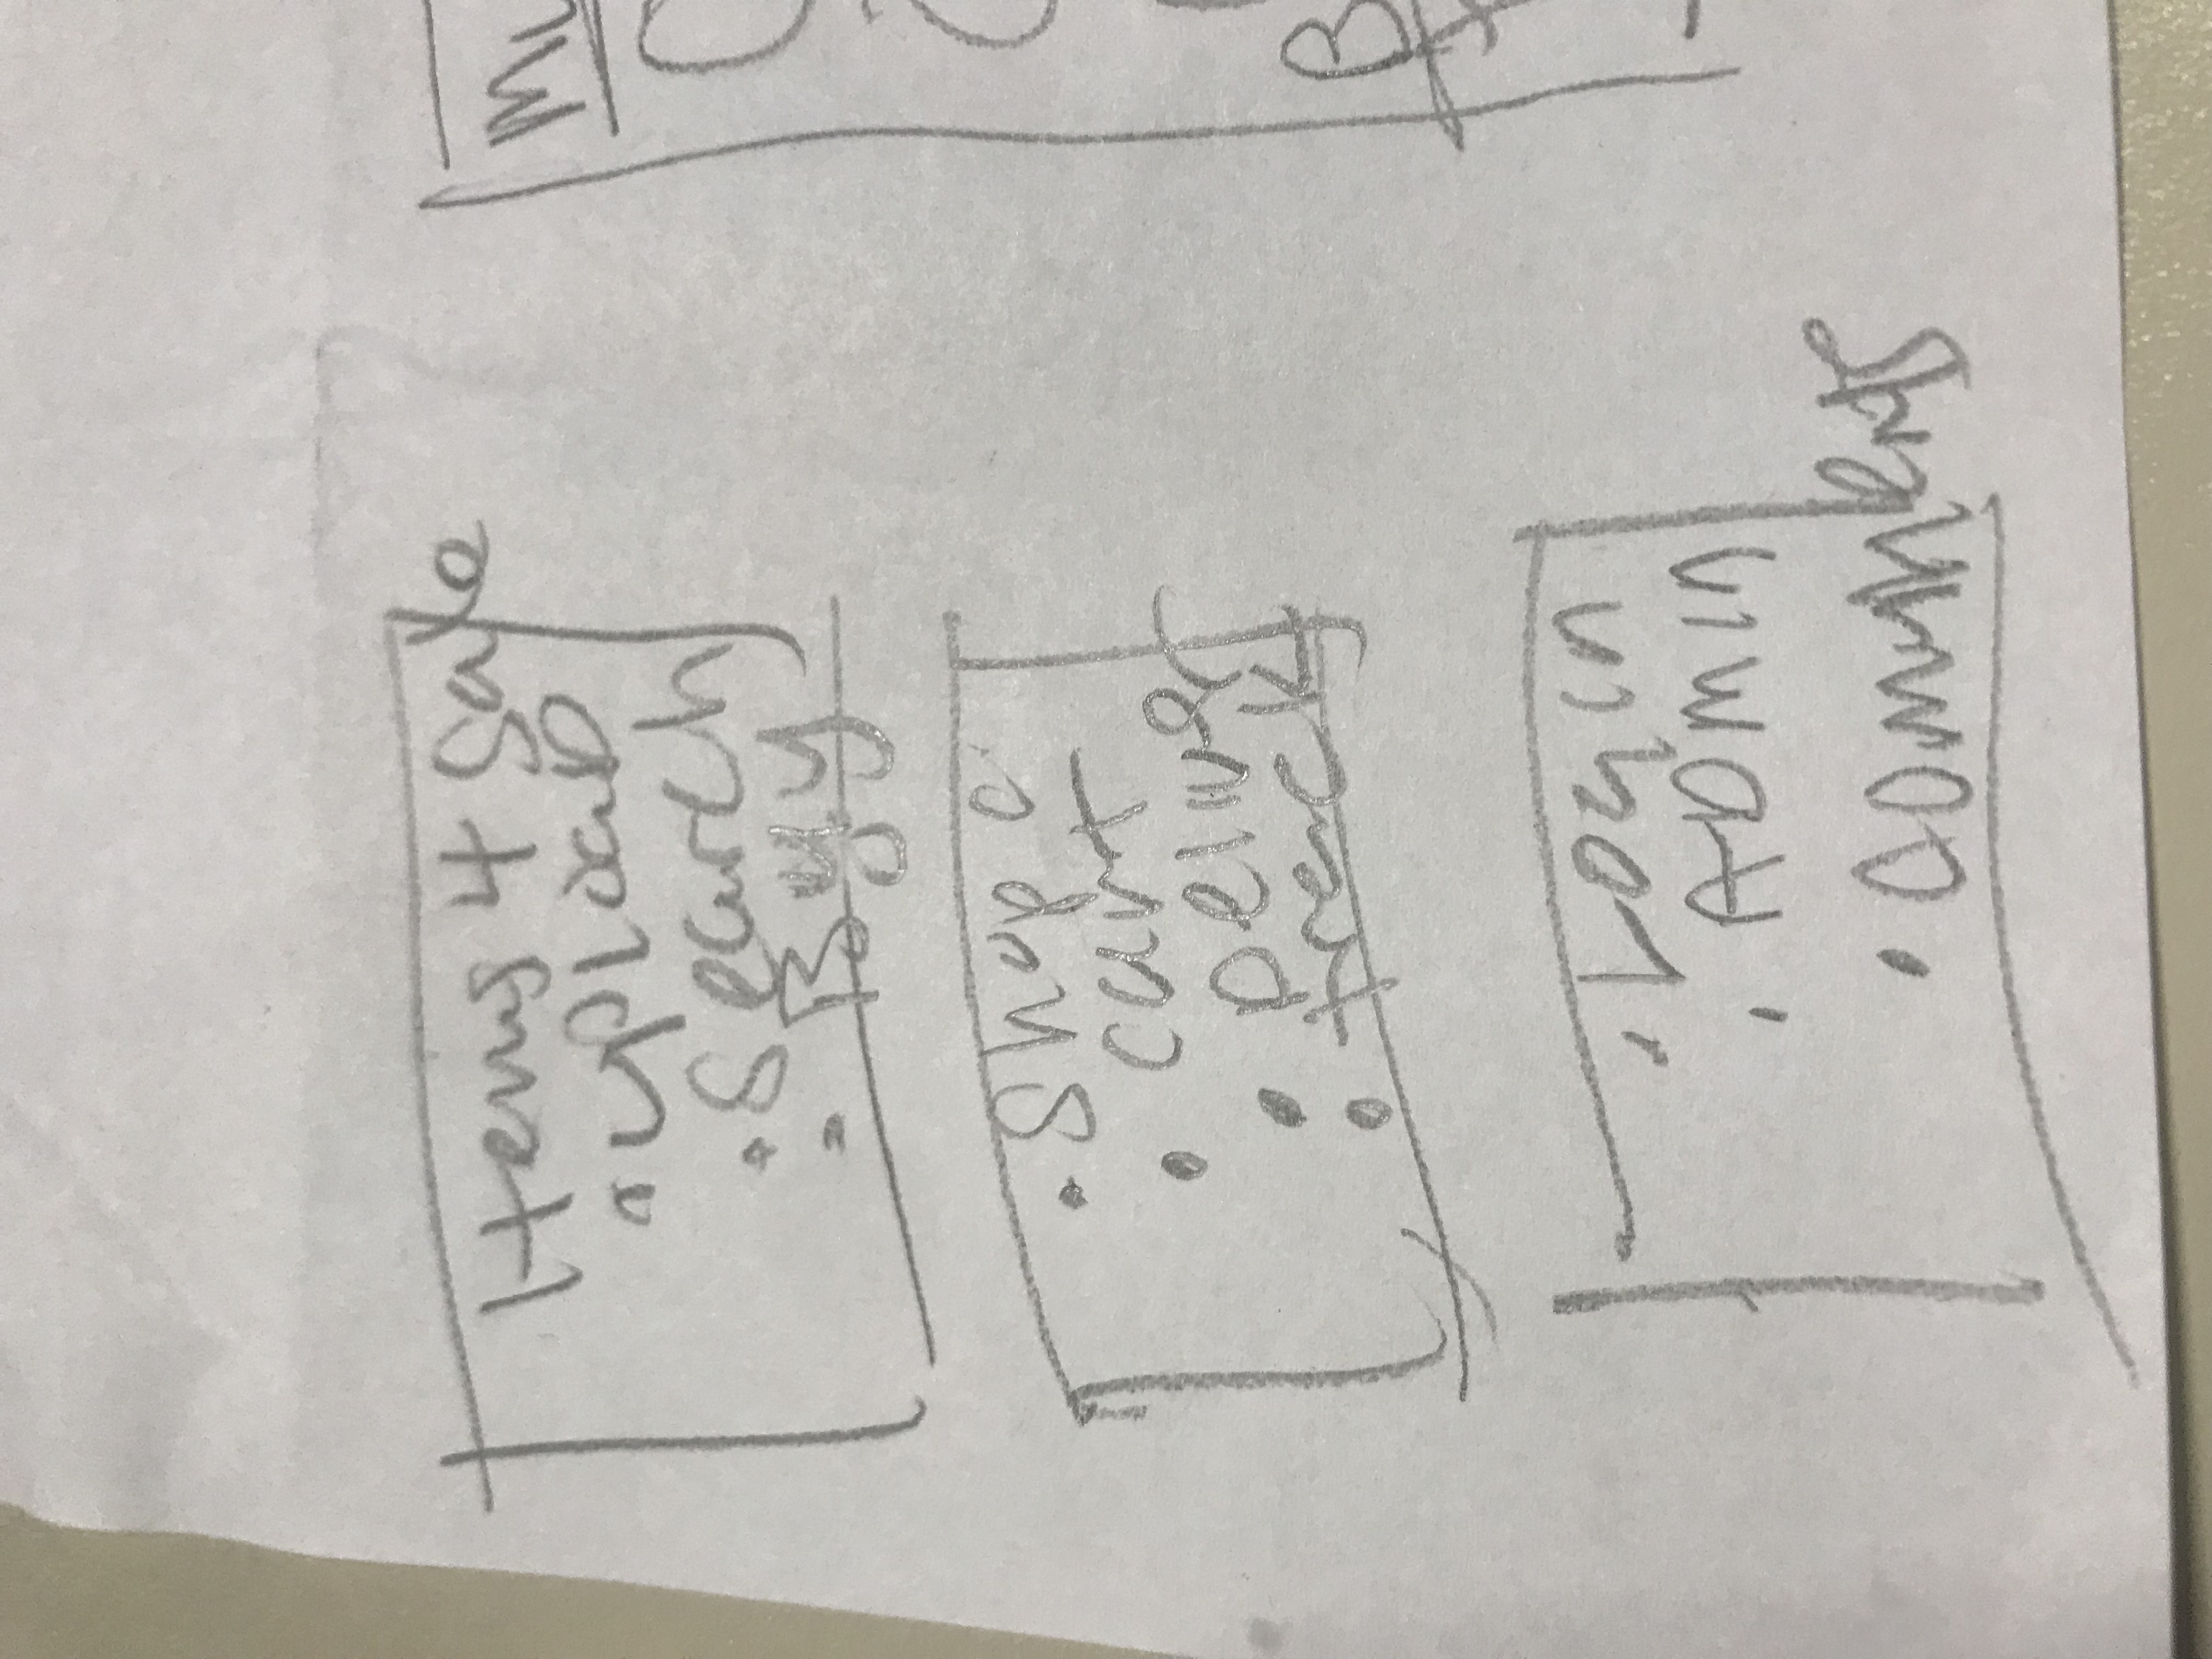 Items 4 Sale
• upLoaD
• Search
• Buy
• Shop c
cart
• Deliver
• track
• Login
• ADmin
• Comments
Mu
B